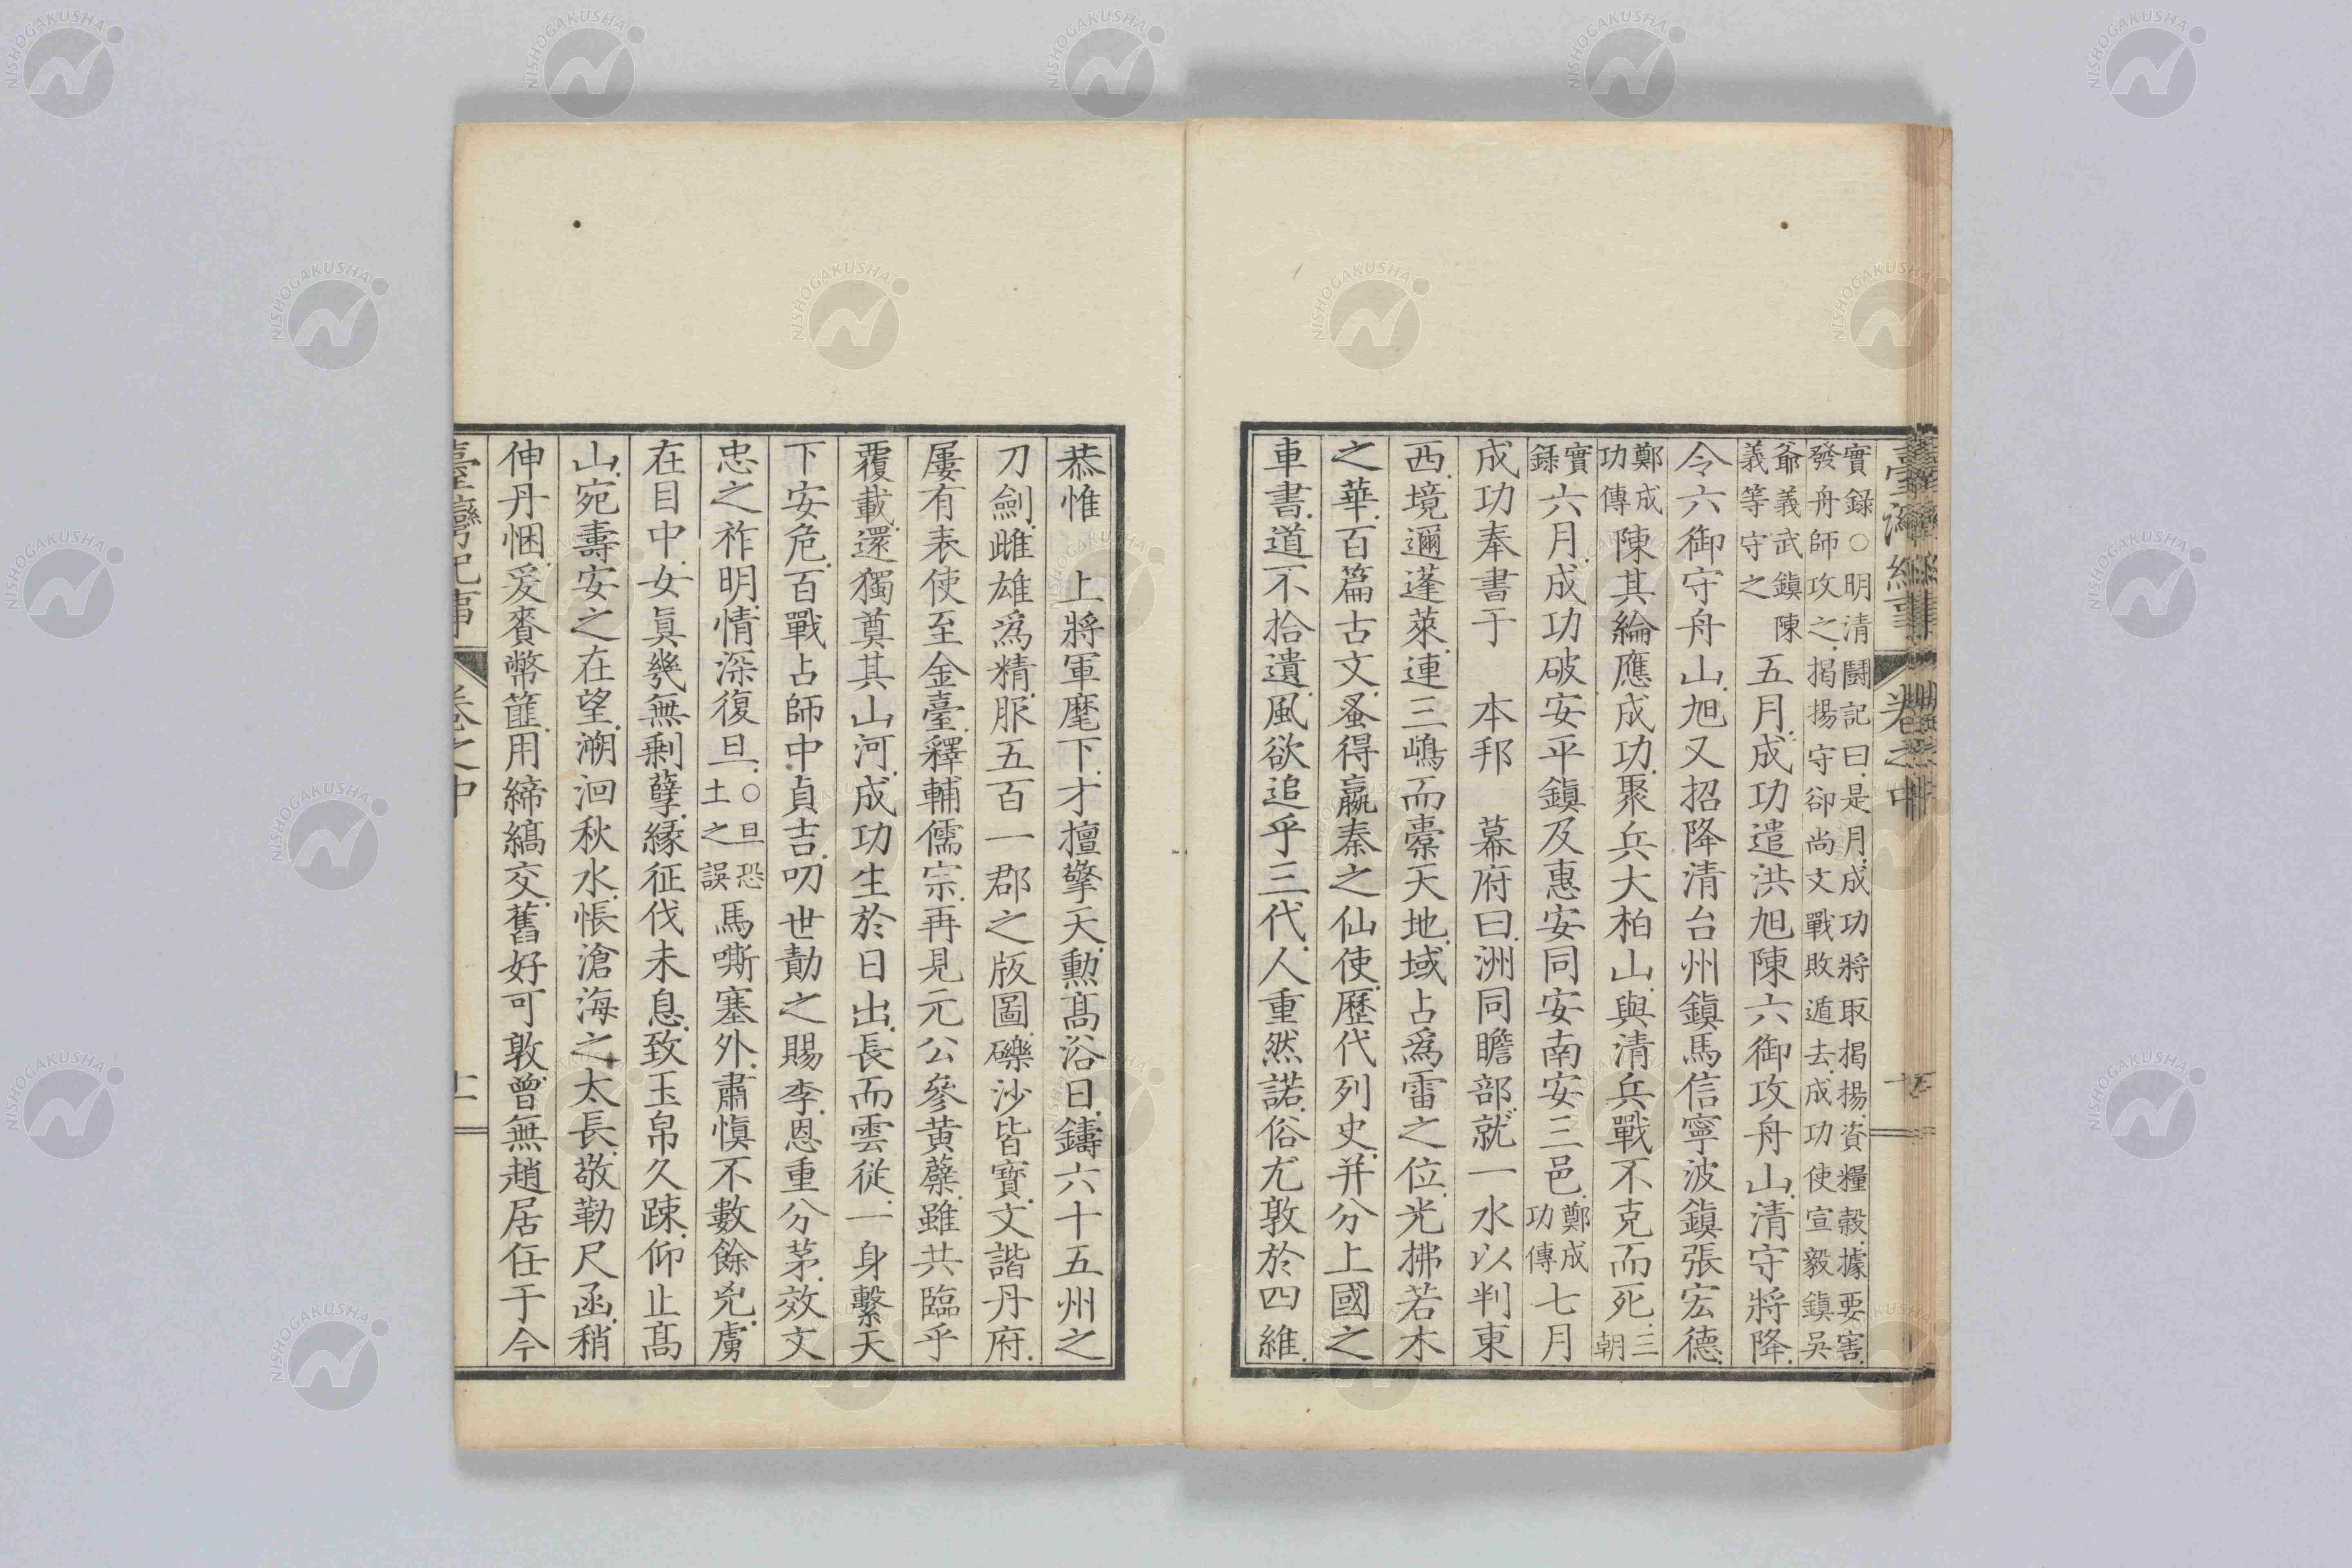 臺灣紀事 卷之中
實錄○明清鬪記曰是月成功將取揭揚資糧穀據要害
發舟師攻之揭揚守卻尚文戰敗遁去成功使宣毅鎮吳
爺義武鎮陳
義等守之
五月成功遣洪旭陳六御攻舟山清守將降
令六御守舟山旭又招降清台州鎮馬信寧波鎮張宏德
鄭成
功傳
陳其綸應成功聚兵大柏山與清兵戰不克而死三
朝
實
錄
六月成功破安平鎮及惠安同安南安三邑鄭成
功傳
七月
成功奉書于 本邦 幕府曰洲同瞻部就一水以判東
西境邇蓬萊連三嶋而橐天地域占爲雷之位光拂若木
之華百篇古文蚤得嬴秦之仙使歷代列史并分上國之
車書道不拾遺風欲追乎三代人重然諾俗尤敦於四維
恭惟 上將軍麾下才擅擎天勳髙浴日鑄六十五州之
刀劍雌雄爲精服五百一郡之版圖礫沙皆寶文諧丹府
屢有表使至金臺釋輔儒宗再見元公參黄蘖雖共臨乎
覆載還獨奠其山河成功生於日出長而雲從一身繫天
下安危百戰占師中貞吉叨世勣之賜李恩重分茅效文
忠之祚明情深復旦○旦恐
土之誤
馬嘶塞外肅愼不數餘兇虜
在目中女眞幾無剩孽緣征伐未息致玉帛久踈仰止髙
山宛壽安之在望溯洄秋水悵滄海之太長敬勒尺函稍
伸丹悃爰賚幣篚用締縞交舊好可敦曾無趙居任于今
臺灣紀事 卷之中
NISHOGAKUSHA